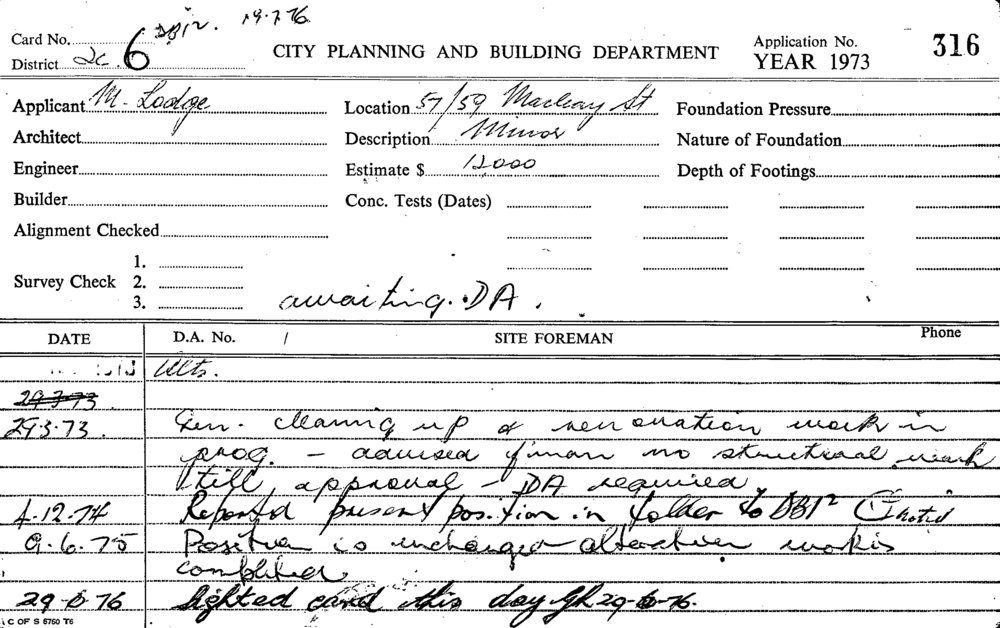 DBI2. 19.7.76
Card No. 6
CITY PLANNING AND BUILDING DEPARTMENT
Application No. 316
District 2c
YEAR 1973
Applicant M. Lodge
Location 57/59 Macleay St
Foundation Pressure
Architect
Description Minor
Nature of Foundation
Engineer
Estimate $ 12,000
Depth of Footings
Builder
Conc. Tests (Dates)
Alignment Checked
Survey Check
1.
2.
3.
awaiting. DA.
DATE
D.A. No. /
SITE FOREMAN
Phone
Alts.
29.3.73
29.3.73. Gen. cleaning up & rennovation work in
prog. – advised f'man no structural work
till approval – DA required
4.12.74 Reported present position in folder to DBI2
9.6.75 Position is unchanged alteration work is
completed
29-6-76 Sighted card this day 29-6-76.
C OF S 6760 T6